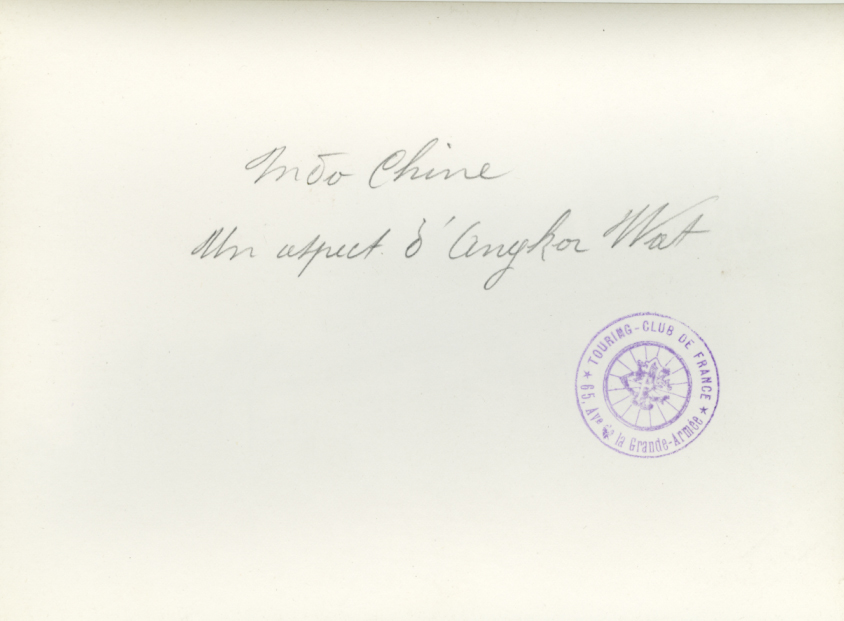 Indo Chine
Un aspect d'Angkor Wat
TOURING-CLUB DE FRANCE
65, Ave de la Grande-Armée